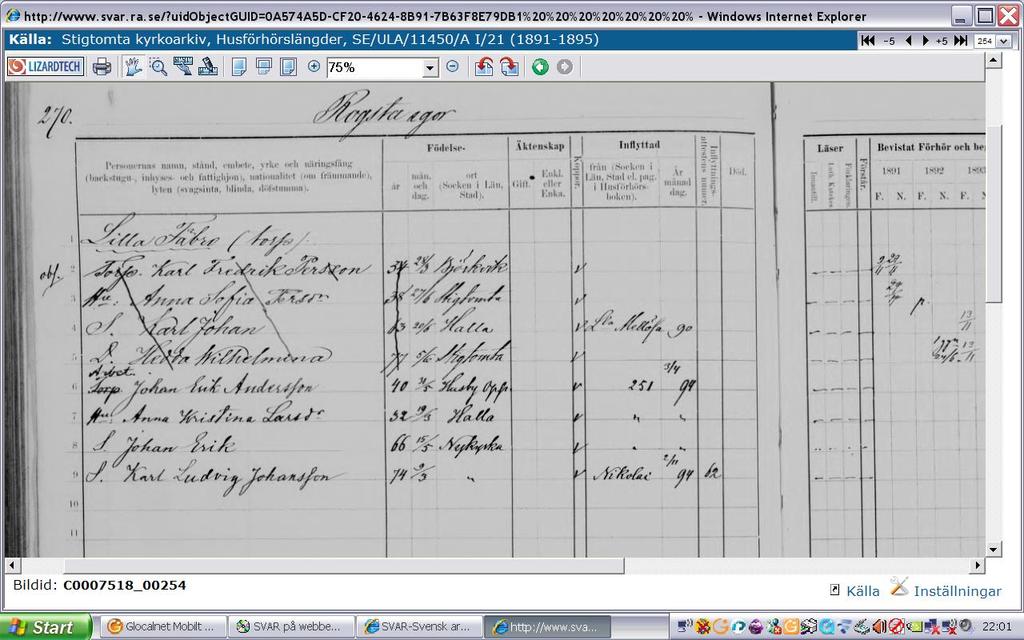 http://www.svar.ra.se/?uidObjectGUID=0A574A5D-CF20-4624-8B91-7B63F8E79DB1%20%20%20%20%20%20%20% - Windows Internet Explorer
Källa: Stigtomta kyrkoarkiv, Husförhörslängder, SE/ULA/11450/A I/21 (1891-1895)
-5 +5 254
LIZARDTECH 75%
270. Rogsta egor
Personernas namn, stånd, embete, yrke och näringsfång (backstugu-, inhyses- och fattighjon), nationalitet (om främmande), lyten (svagsinta, blinda, döfstumma).
Födelse-
år
mån. och dag.
ort (Socken i Län, Stad).
Äktenskap
Gift.
Enkl. eller Enka.
Koppor.
Inflyttad
från (Socken i Län, Stad el. pag. i Husförhörs-boken).
År månad dag.
Inflyttnings-attestens nummer.
Död.
Läser
Innantill.
Förstår.
Bevistat Förhör och be
1891 1892 1893
F. N. F. N. F.
1 Lilla Täbro (torp)
obf. 2 Torp. Karl Fredrik Persson 34 28/3 Björkvik v
3 Hu: Anna Sofia Persdr 38 27/6 Stigtomta v
4 S. Karl Johan 63 20/6 Halla v Lla Mellösa 90
5 D. Hedda Wilhelmina 77 5/6 Stigtomta v
Arbet.
6 Torp Johan Erik Andersson 40 Husby Opp. v 251 3/4 94
7 Hu: Anna Kristina Larsdr 32 19/3 Halla v " "
8 S. Johan Erik 66 15/5 Nykyrka v " "
9 S. Karl Ludvig Johansson 74 9/3 " v Nikolai 2/11 94 62
10
11
Bildid: C0007518_00254
Källa Inställningar
Start Glocalnet Mobilt ... SVAR på webbe... SVAR-Svensk ar... http://www.sva... 22:01